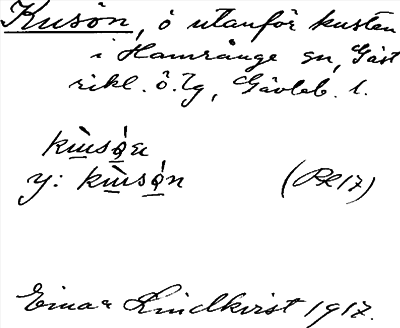 Kusön, ö utanför kusten
i Hamrånge sn, Gäst
rikl. ö. tg, Gävleb. l.
y:
Einar Lindkvist 1917.